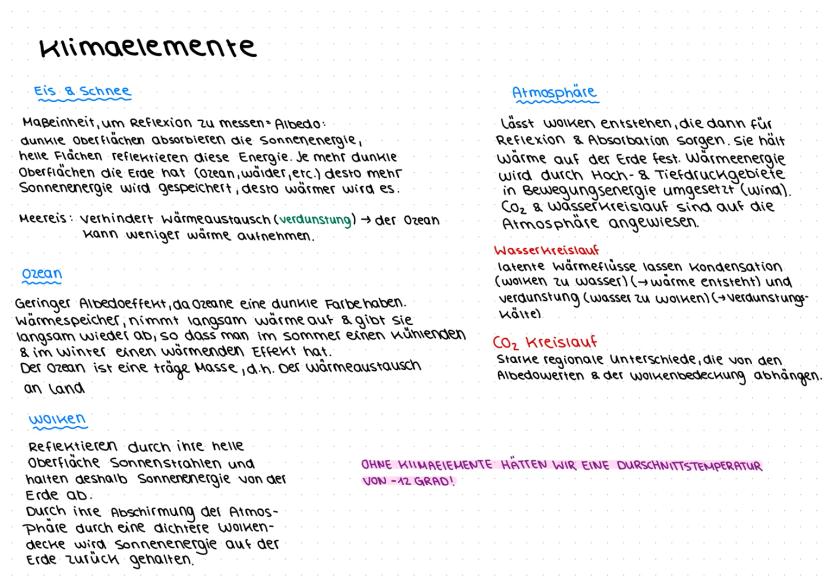 Klimaelemente
Eis & Schnee
Maßeinheit, um Reflexion zu messen = Albedo:
dunkle Oberflächen absorbieren die Sonnenenergie,
helle Flächen reflektieren diese Energie. Je mehr dunkle
Oberflächen die Erde hat (Ozean, wälder, etc.) desto mehr
Sonnenenergie wird gespeichert, desto wärmer wird es.
Meereis: verhindert Wärmeaustausch (verdunstung) → der Ozean
kann weniger wärme aufnehmen.
Ozean
Geringer Albedoeffekt, da Ozeane eine dunkle Farbe haben.
Wärmespeicher, nimmt langsam wärme auf & gibt sie
langsam wieder ab, so dass man im sommer einen kühlenden
& im Winter einen wärmenden Effekt hat.
Der Ozean ist eine träge Masse, d.h. Der wärmeaustausch
an Land
Wolken
Reflektieren durch ihre helle
Oberfläche Sonnenstrahlen und
halten deshalb Sonnenenergie von der
Erde ab.
Durch ihre Abschirmung der Atmos-
phäre durch eine dichtere Wolken-
decke wird Sonnenenergie auf der
Erde zurück gehalten.
Atmosphäre
Lässt wolken entstehen, die dann für
Reflexion & Absorbation sorgen. Sie hält
Wärme auf der Erde fest. Wärmeenergie
wird durch Hoch- & Tiefdruckgebiete
in Bewegungsenergie umgesetzt (wind).
CO₂ & Wasserkreislauf sind auf die
Atmosphäre angewiesen.
Wasserkreislauf
latente Wärmeflüsse lassen Kondensation
(wolken zu wasser) (→ wärme entsteht) und
verdunstung (wasser zu wolken) (→ verdunstungs-
kälte)
CO₂ Kreislauf
Starke regionale Unterschiede, die von den
Albedowerten & der Wolkenbedeckung abhängen.
OHNE KLIMAELEMENTE HÄTTEN WIR EINE DURSCHNITTSTEMPERATUR
VON -12 GRAD!